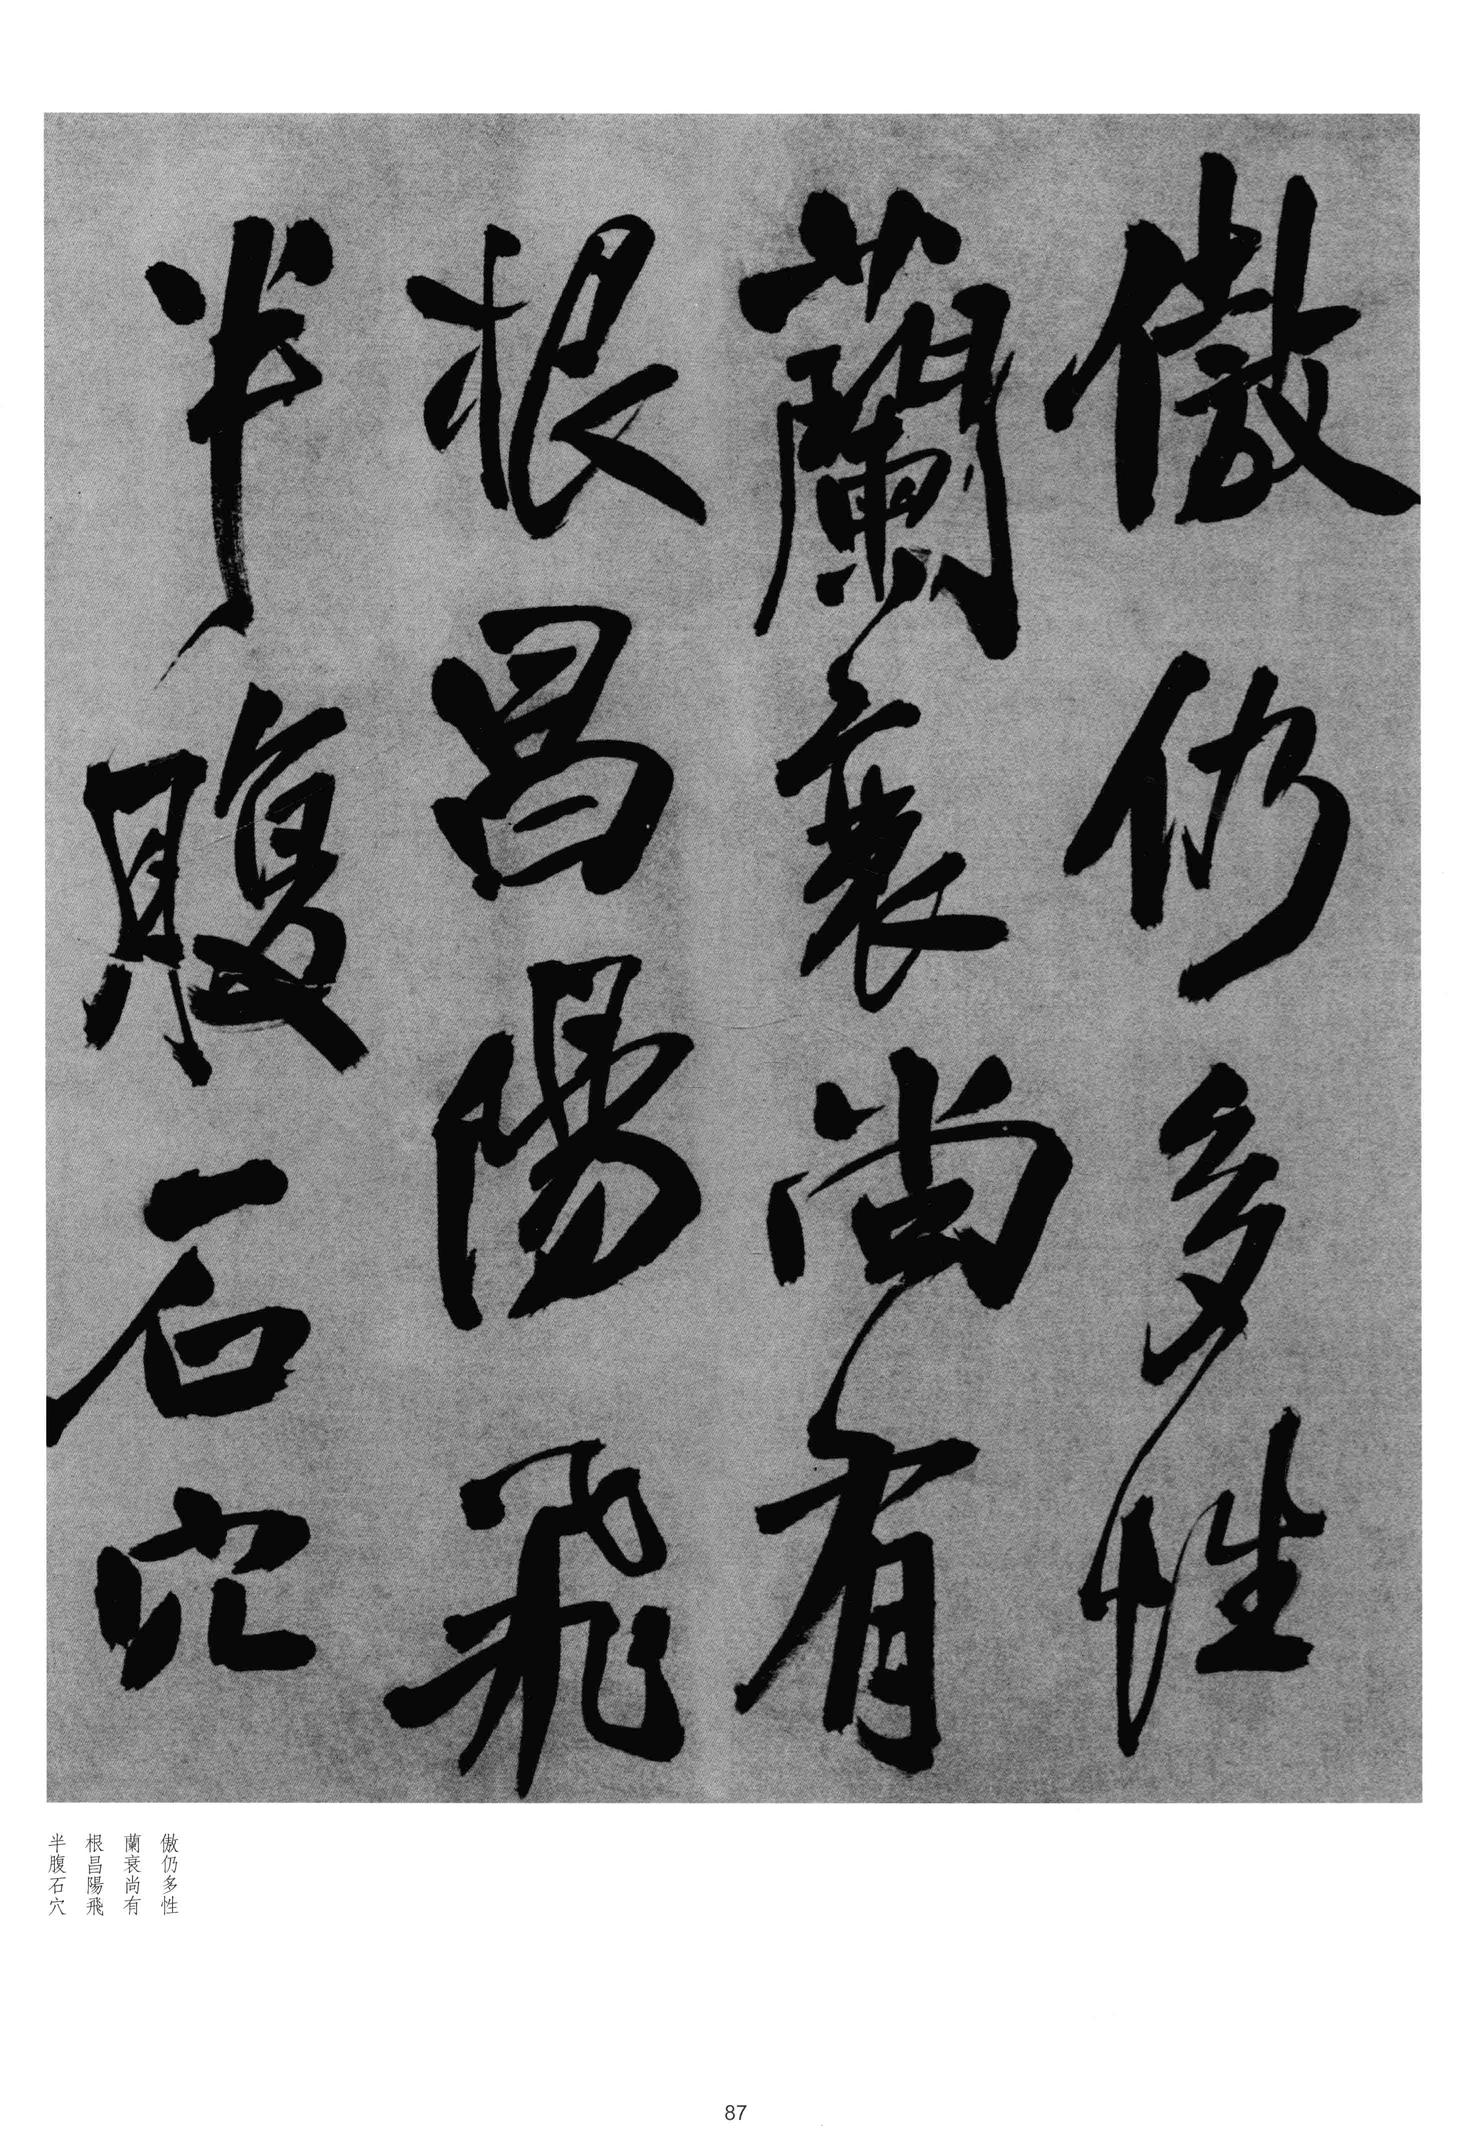 傲仍多性
蘭衰尚有
根昌陽飛
半腹石穴
傲仍多性
蘭衰尚有
根昌陽飛
半腹石穴
87